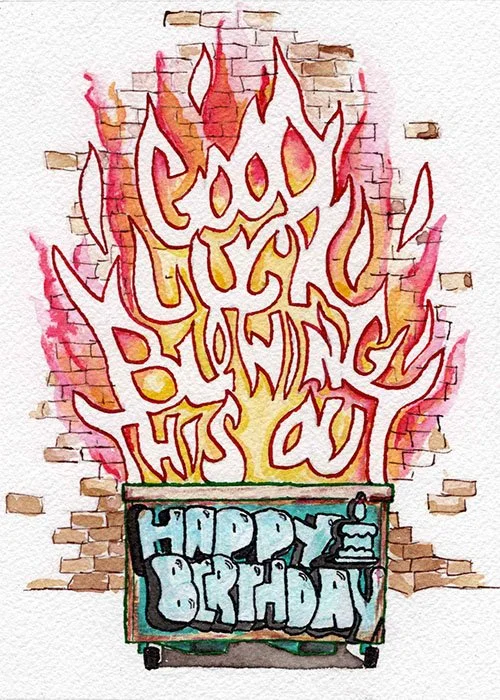 GOOD
LUCK
BLOWING
THIS OUT
HAPPY
BIRTHDAY